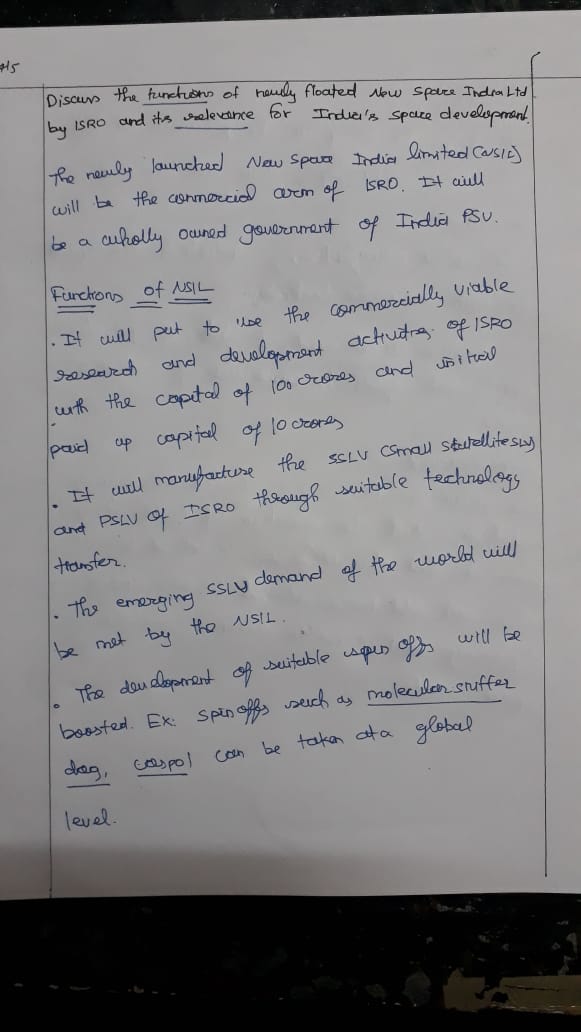 Discuss the functions of newly floated New Space India Ltd
by ISRO and its relevance for India's space development.
The newly launched New Space India limited (NSIL)
will be the commercial arm of ISRO. It will
be a wholly owned government of India PSU.
Functions of NSIL
. It will put to use the commercially viable
research and development activities of ISRO
with the capital of 100 crores and initial
paid up capital of 10 crores
. It will manufacture the SSLV (small satellite
and PSLV of ISRO through suitable technology
transfer.
. The emerging SSLV demand of the world will
be met by the NSIL.
. The development of suitable offs will be
boosted. Ex: spin offs such as molecular
dog, caspol can be taken at a global
level.